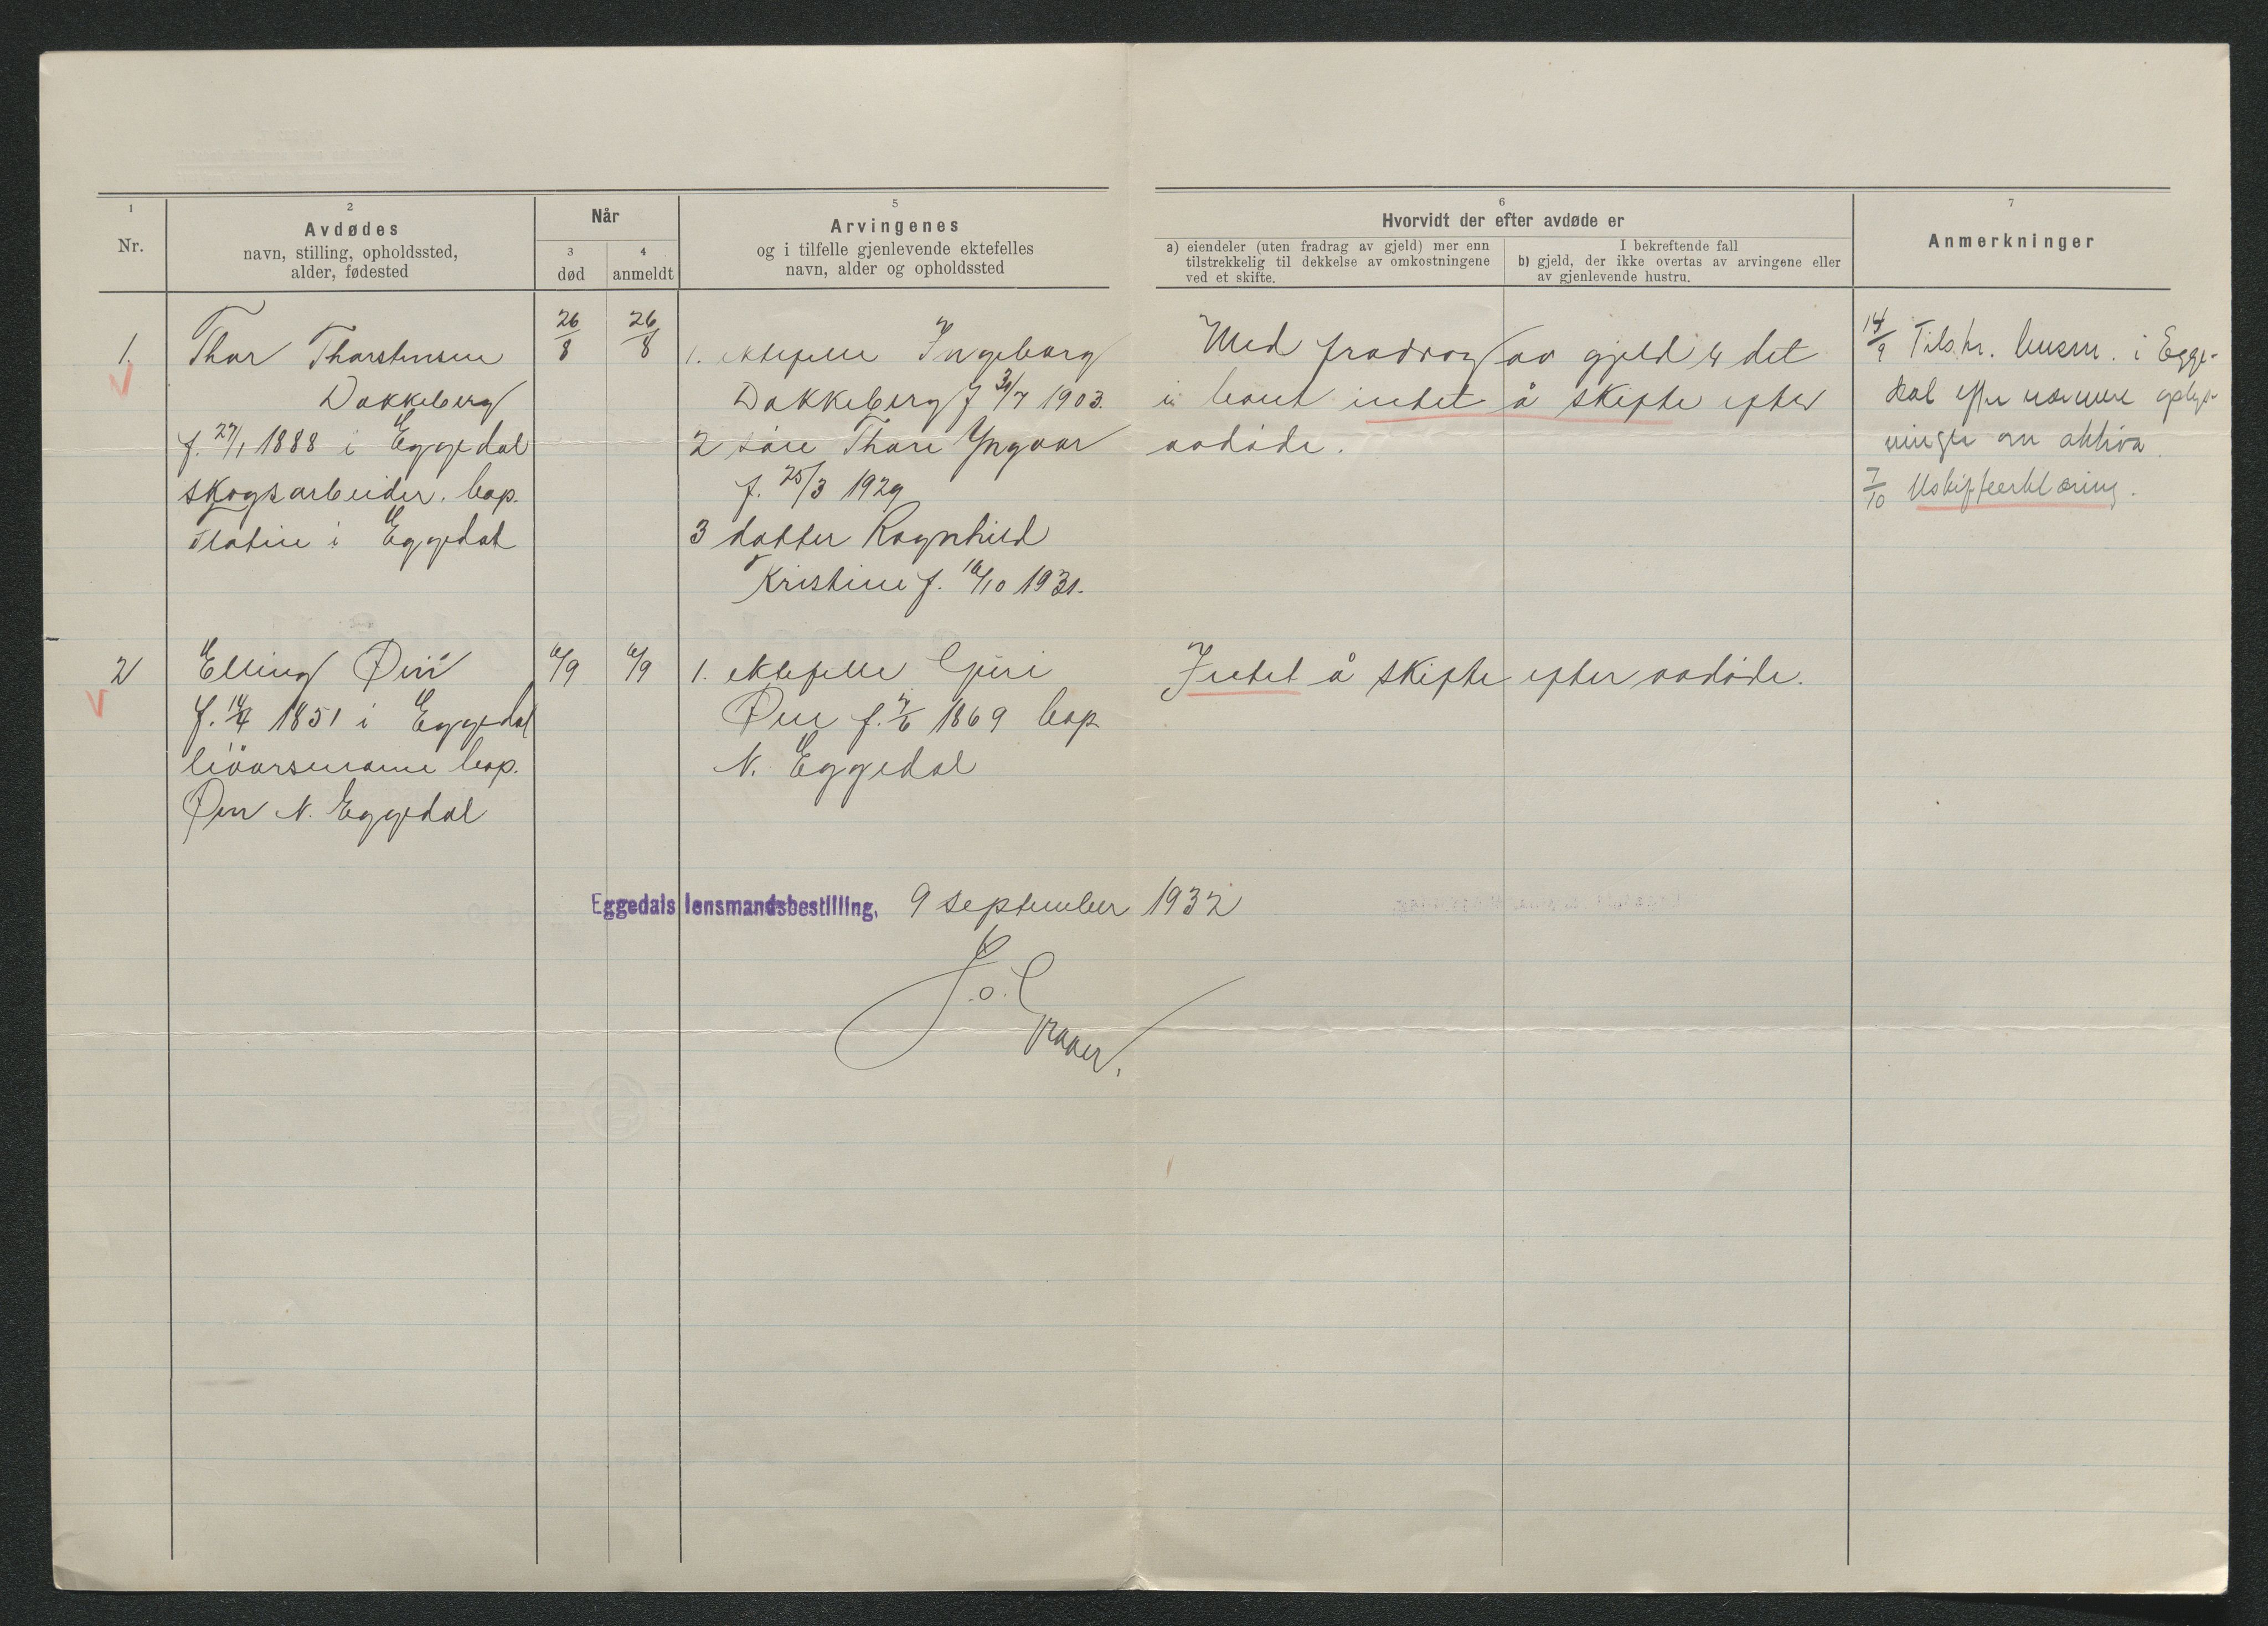 1
Nr.
2
Avdødes
navn, stilling, opholdssted,
alder, fødested
Når
3
død
4
anmeldt
5
Arvingenes
og i tilfelle gjenlevende ektefelles
navn, alder og opholdssted
6
Hvorvidt der efter avdøde er
a) eiendeler (uten fradrag av gjeld) mer enn
tilstrekkelig til dekkelse av omkostningene
ved et skifte.
I bekreftende fall
b) gjeld, der ikke overtas av arvingene eller
av gjenlevende hustru.
7
Anmerkninger
1.
Thor Thorstensen
Dokkeberg
f. 27/1 1888 i Eggedal
skogsarbeider. bop.
i Eggedal
26/8
26/8
1. ektefelle Ingeborg
Dokkeberg f 31/7 1903.
2 Thore Yngvar
f. 25/3 1929
3 datter Ragnhild
Kristine f. 16/10 1931.
Med fradrag av gjeld er det
intet å skifte efter
avdøde.
14/9 Tilskr. lensm. i Egge-
dal efter nærmere oplys-
ninger om aktiva.
7/10 Uskifteerklæring.
2
Elling Øen
f. 1851 i Eggedal
livørsmann bop.
Øen N. Eggedal
6/9
6/9
1. ektefelle Guri
Øen f. 1869 bop
N. Eggedal
Intet å skifte efter avdøde.
Eggedals lensmandsbestilling, 9 september 1932